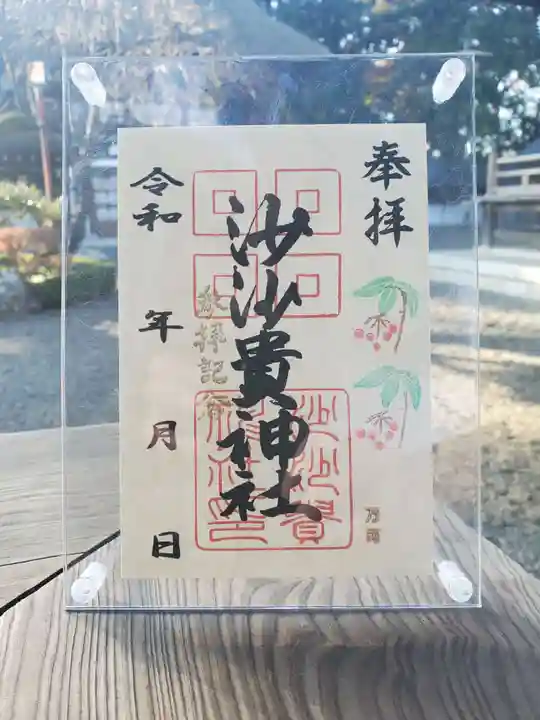 奉拝
万両
沙沙貴神社
参拝記念
沙沙貴
神社之印
令和 年 月 日